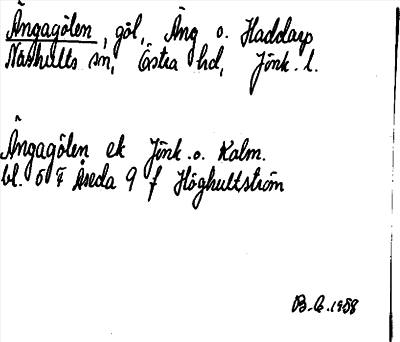 Ängagölen, göl, Äng o. Haddarp
Näshults sn, Östra hd, Jönk. l.
Ängagölen ek Jönk. o. Kalm.
bl. 5 F Åseda 9 f Höghultström
B.C. 1988